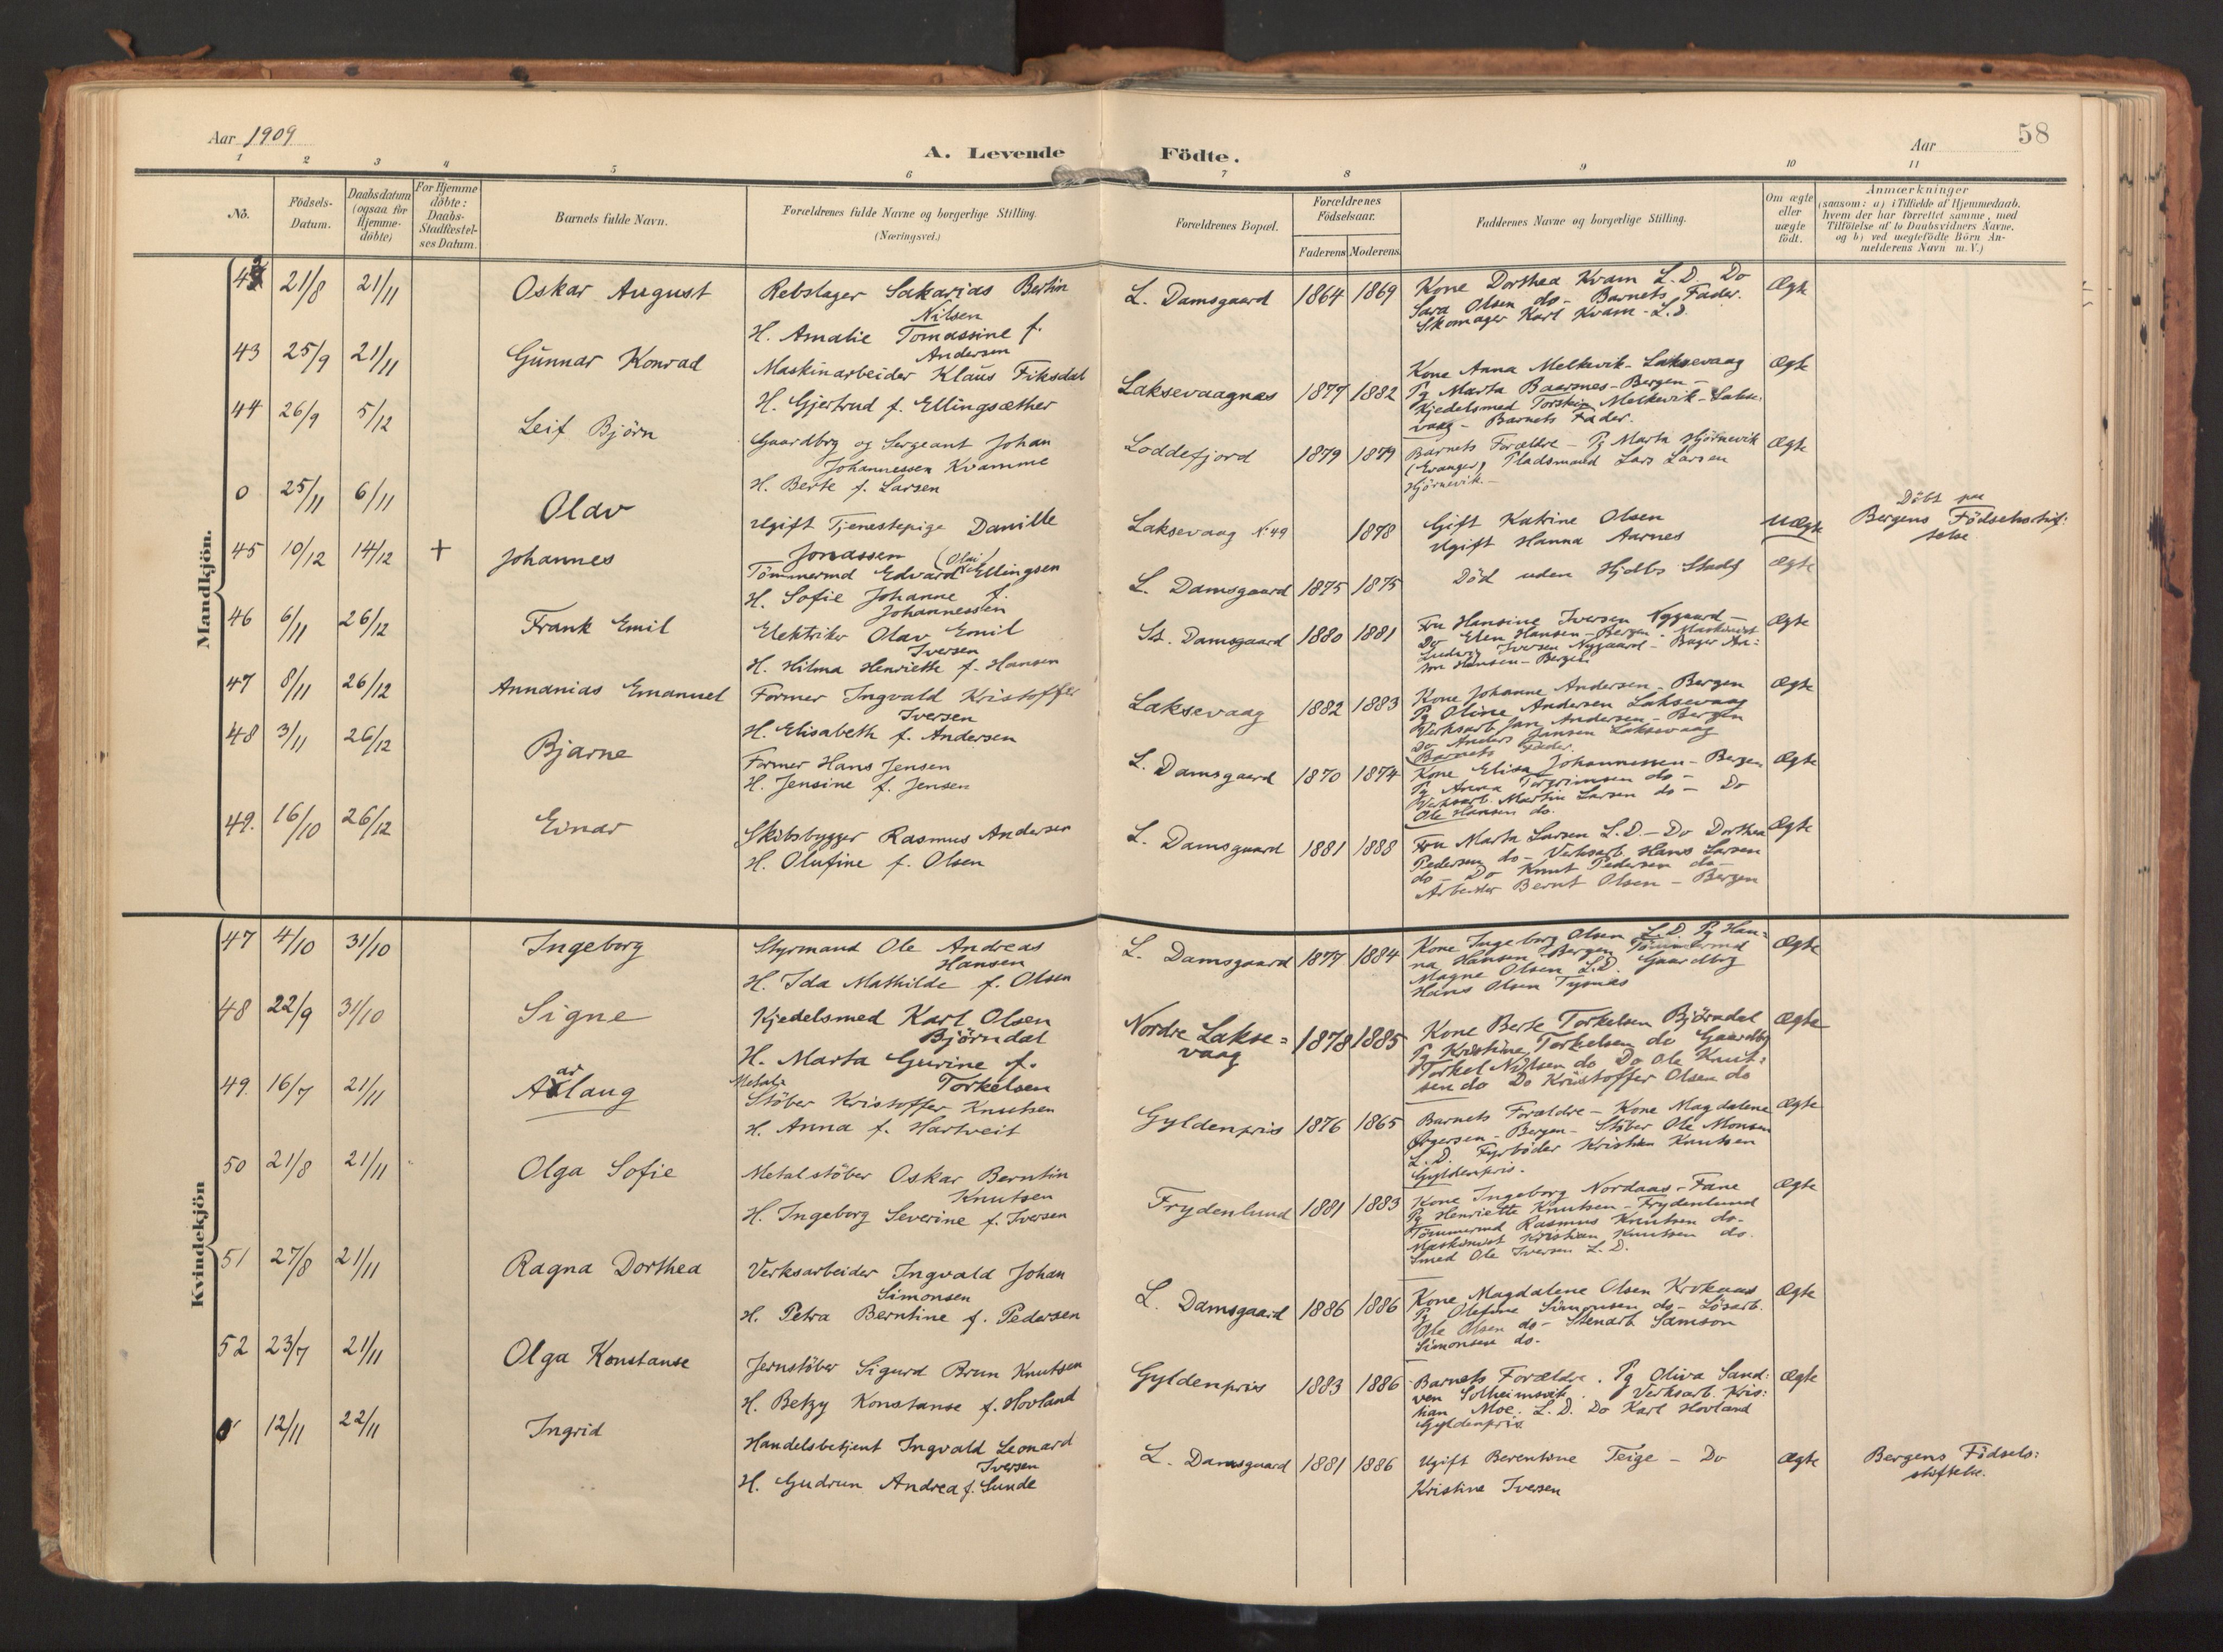 Aar 1909
A. Levende Födte.
Aar
58
1 2 3 4 5 6 7 8 9 10 11
No.
Födsels-Datum.
Daabsdatum (ogsaa for Hjemme-döbte)
For Hjemme döbte: Daabs-Stadfæstelses Datum.
Barnets fulde Navn.
Forældrenes fulde Navne og borgerlige Stilling.
(Næringsvei.)
Forældrenes Bopæl.
Forældrenes Födselsaar.
Faderens Moderens
Faddernes Navne og borgerlige Stilling.
Om ægte eller uægte födt.
Anmærkninger
(saasom: a) i Tilfælde af Hjemmedaab, hvem der har forrettet samme, med Tilföielse af to Daabsvidners Navne, og b) ved uægtefödte Börn Anmelderens Navn m.V.)
Mandkjön.
42 21/8 21/11 Oskar August Rebslager Sakarias Bertin
Nilsen
H. Amalie Tomassine f.
Andersen
L. Damsgaard 1864 1869 Kone Dorthea Kvam L.D. Do
Sara Olsen do - Barnets Fader.
Skomager Karl Kvam - L.D.
Ægte
43 25/9 21/11 Gunnar Konrad Maskinarbeider Klaus Fiksdal
H. Gjertrud f. Ellingsæther
Laksevaagnæs 1877 1882 Kone Anna Melkevik - Laksevaag
Pg Marta Baarnes - Bergen -
Kjedelsmed Torstein Melkevik - Lakse:
vaag - Barnets Fader.
Ægte
44 26/9 5/12 Leif Björn Gaardbrg og Sergeant Johan
Johannessen Kvamme
H. Berte f. Larsen
Loddefjord 1879 1879 Barnets Forældre - Pg Marta Hjörnevik
(Evanger) Pladsmand Lars Larsen
Hjörnevik. -
Ægte
0 25/11 6/11 Olav Ugift Tjenestepige Danille
Jonassen
Laksevaag No 49 1878 Gift Katrine Olsen
Ugift Hanna Aarnes
Uægte
Döbt paa
Bergens Födselsstif:
telse
45 10/12 14/12 + Johannes Tömmermd Edvard (Olai) Ellingsen
H. Sofie Johanne f.
Johannessen
L. Damsgaard 1875 1875 Död uden Hjdbs Stadf
Ægte
46 6/11 26/12 Frank Emil Elektriker Olav Emil
Iversen
H. Hilma Henriette f. Hansen
St. Damsgaard 1880 1881 Fru Hansine Iversen Nygaard -
Do Elen Hansen - Bergen - Maskinist
Ludvig Iversen Nygaard - Bager An:
ton Hansen - Bergen
Ægte
47 8/11 26/12 Annanias Emanuel Former Ingvald Kristoffer
Iversen
H. Elisabeth f. Andersen
Laksevaag 1882 1883 Kone Johanne Andersen - Bergen
Pg Oline Andersen Laksevaag
Verksarb. Jan Andersen - Bergen
Do Anders Jansen Laksevaag
Barnets Fader.
Ægte
48 3/11 26/12 Bjarne Former Hans Jensen
H. Jensine f. Jensen
L. Damsgaard 1870 1874 Kone Elisa Johannessen - Bergen
Pg Anna Torgrimsen do -
Verksarb. Martin Larsen do - Do
Ole Hansen do.
Ægte
49. 16/10 26/12 Einar Skibsbygger Rasmus Andersen
H. Olufine f. Olsen
L. Damsgaard 1881 1888 Fru Marta Larsen L.D. - Do Dorthea
Pedersen do - Verksarb. Hans Larsen
do - Do Knut Pedersen do -
Arbeider Bernt Olsen - Bergen
Ægte
Kvindekjön
47 4/10 31/10 Ingeborg Styrmand Ole Andreas
Hansen
H. Ida Mathilde f. Olsen
L. Damsgaard 1877 1884 Kone Ingeborg Olsen L.D. Pg Han:
na Hansen - Bergen Tömmermd
Magne Olsen L.D. Gaardbrg
Hans Olsen Tysnæs
Ægte
48 22/9 31/10 Signe Kjedelsmed Karl Olsen
Björndal
H. Marta Gurine f.
Torkelsen
Nordre Lakse=
vaag
1878 1885 Kone Berte Torkelsen Björndal
Pg Kristine Torkelsen do Gaardbrg
Torkel Nilsen do Do Ole Knut:
sen do Do Kristoffer Olsen do
Ægte
49. 16/7 21/11 Aslaug
Metals
Stöber Kristoffer Knutsen
H. Anna f. Hartveit
Gyldenpris 1876 1865 Barnets Forældre - Kone Magdalene
- Bergen - Stöber Ole Monsen
L.D. Fyrböder Kristian Knutsen
Gyldenpris.
Ægte
50 21/8 21/11 Olga Sofie Metalstöber Oskar Berntin
Knutsen
H. Ingeborg Severine f. Iversen
Frydenlund 1881 1883 Kone Ingeborg Nordaas - Fane
Pg Henriette Knutsen - Frydenlund
Tömmermd Rasmus Knutsen do -
Maskinist Kristian Knutsen do.
Smed Ole Iversen L.D.
Ægte
51 27/8 21/11 Ragna Dorthea Verksarbeider Ingvald Johan
Simonsen
H. Petra Berntine f. Pedersen
L. Damsgaard 1886 1886 Kone Magdalene Olsen Krokaas
Pg Olefine Simonsen do - Lösarb.
Ole Olsen do - Stenarb Samson
Simonsen do.
Ægte
52 23/7 21/11 Olga Konstanse Jernstöber Sigurd Brun Knutsen
H. Betzy Konstanse f. Hovland
Gyldenpris 1883 1886 Barnets Forældre. Pg Oliva Sand:
ven Solheimsvik. Verksarb. Kris:
tian Moe. L.D. Do Karl Hovland
Gyldenpris
Ægte
0 12/11 22/11 Ingrid Handelsbetjent Ingvald Leonard
Iversen
H. Gudrun Andrea f. Sunde
L. Damsgaard 1881 1886 Ugift Berentine Teige - Do
Kristine Iversen
Ægte
Bergens Födsels:
stiftelse.